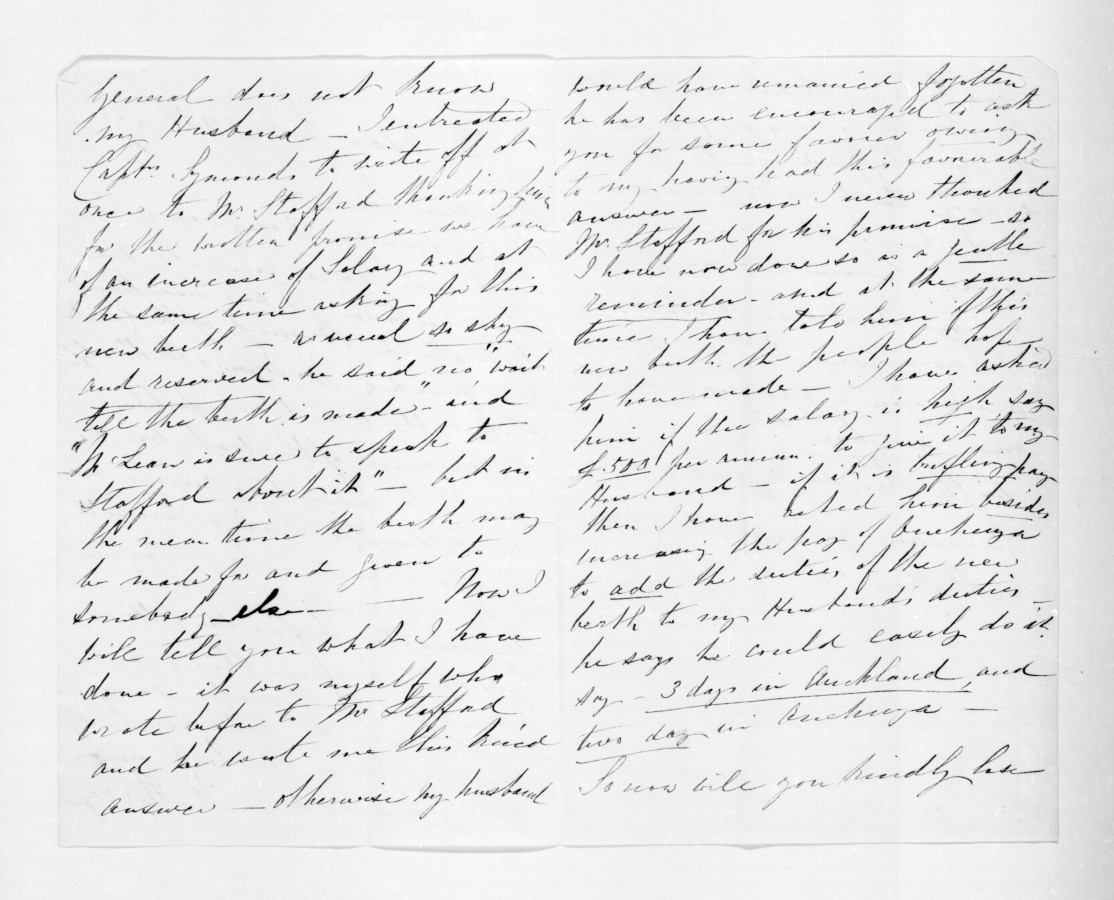 General does not know
my Husband – I entreated
Captn. Symonds to write off at
once to Mr Stafford thanking him
for the written promise we have
of an increase of Salary and at
the same time asking for this
new berth – as usual so shy
and reserved – he said no "wait
till the berth is made" – and
"McLean is sure to speak to
Stafford about it" – but in
the mean time the berth may
be made for and given to
somebody else – – Now I
will tell you what I have
done – it was myself who
wrote before to Mr Stafford
and he wrote me this kind
answer – otherwise my husband
would have remained forgotten
he has been encouraged to ask
you for some favour owing
to my having had this favourable
answer – now I never thanked
Mr. Stafford for his promise – so
I have now done so as a gentle
reminder – and at the same
time I have told him of this
new berth the people hope
to have made – I have asked
him if the salary is high say
£500 per annum. to give it to my
Husband – if it is trifling pay
then I have asked him besides
increasing the pay of Onehunga
to add the duties of the new
berth to my Husband's duties –
he says he could easily do it.
say – 3 days in Auckland, and
two day in Onehunga –
So now will you kindly lose